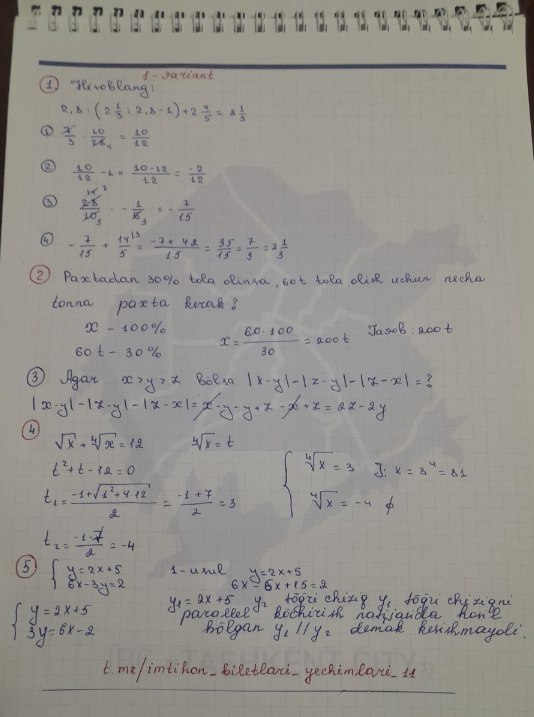 1-variant
① Hisoblang:
2,8 · (2 1/3 : 2,8 - 1) + 2 4/5 = 2 1/3
① 7/3 · 10/28 4 = 10/12
② 10/12 - 1 = 10-12/12 = -2/12
③ 28 14 2/10 5 · - 1/6 3 = - 7/15
④ - 7/15 + 14 \3/5 = -7+42/15 = 35/15 = 7/3 = 2 1/3
② Paxtadan 30% tola olinsa, 60t tola olish uchun necha
tonna paxta kerak?
x - 100%
60t - 30%
x = 60·100/30 = 200t Javob: 200t
③ Agar x>y>z bo'lsa |x-y|-|z-y|-|z-x|=?
|x-y|-|z-y|-|z-x|= x-y-y+z-x+z=2z-2y
④
√x + ∜x = 12 ∜x = t
t²+t-12=0
t₁ = -1+√1²+4·12/2 = -1+7/2 = 3
t₂ = -1-7/2 = -4
{ ∜x = 3 J: x = 3⁴ = 81
∜x = -4 ∅
⑤ { y=2x+5
6x-3y=2
1-usul y=2x+5
6x-6x+15=2
{ y=2x+5
3y=6x-2
y₁=2x+5 y₂ to'g'ri chiziq y₁ to'g'ri chiziqni
parallel ko'chirish natijasida hosil
bo'lgan y₁//y₂ demak kesishmaydi.
IBC "TASHKENT CITY»
t.me/imtihon_biletlari_yechimlari_11